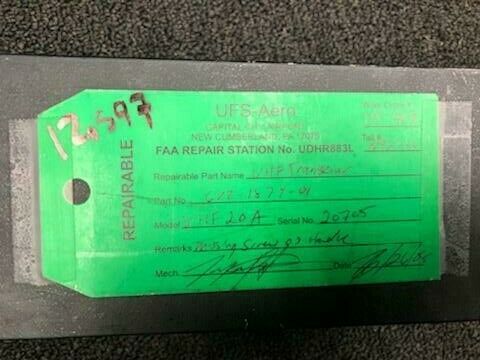 120593
REPAIRABLE
UFS-Aero
CAPITAL CITY AIRPORT
NEW CUMBERLAND, PA 17070
FAA REPAIR STATION No. UDHR883L
Work Order #
Tail #
Repairable Part Name VHF Transceiver
Part No.
Model VHF 20A Serial No. 20705
Remarks Missing Screws
Mech.
Date